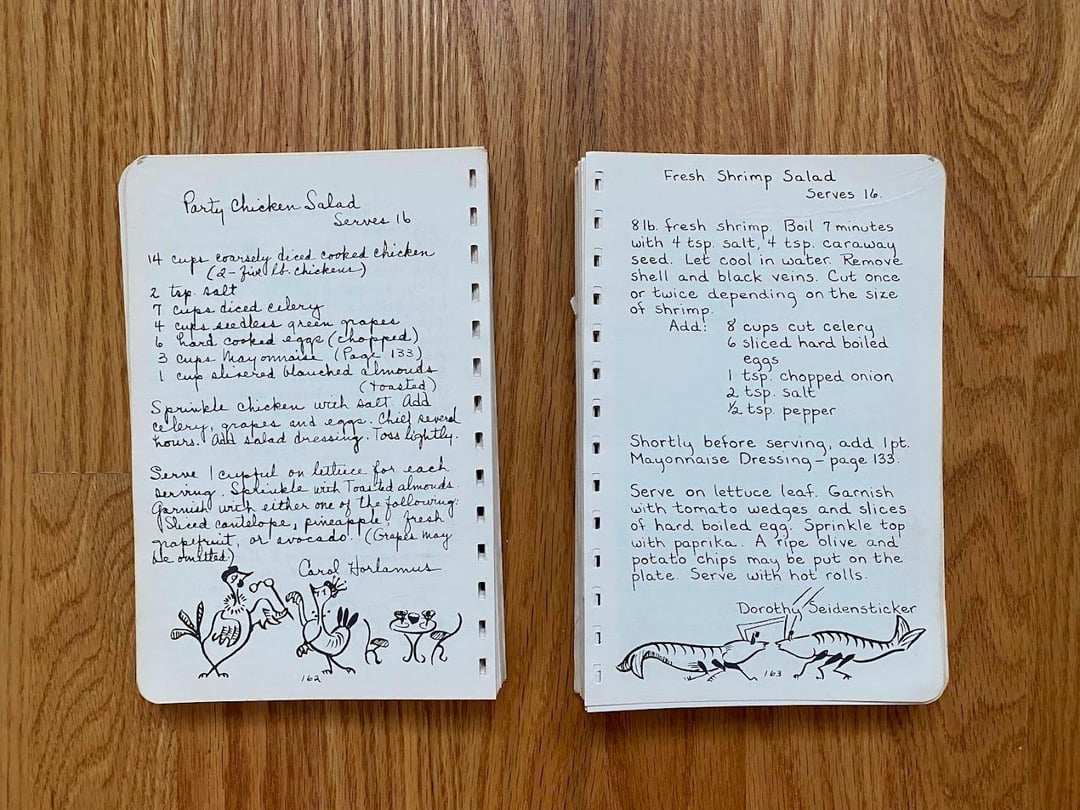 Party Chicken Salad
Serves 16
14 cups coarsely diced cooked chicken
(2-five lb. chickens)
2 tsp. salt
7 cups diced celery
4 cups seedless green grapes
6 hard cooked eggs (chopped)
3 cups Mayonnaise (Page 133)
1 cup slivered blanched almonds
(toasted)
Sprinkle chicken with salt. Add
celery, grapes and eggs. Chill several
hours. Add salad dressing. Toss lightly.
Serve 1 cupful on lettuce for each
serving. Sprinkle with Toasted almonds.
Garnish with either one of the following:
Sliced cantelope, pineapple, fresh
grapefruit, or avocado. (Grapes may
be omitted)
Carol Horlamus
162
Fresh Shrimp Salad
Serves 16.
8 lb. fresh shrimp. Boil 7 minutes
with 4 tsp. salt, 4 tsp. caraway
seed. Let cool in water. Remove
shell and black veins. Cut once
or twice depending on the size
of shrimp.
Add: 8 cups cut celery
6 sliced hard boiled
eggs
1 tsp. chopped onion
2 tsp. salt
1/2 tsp. pepper
Shortly before serving, add 1 pt.
Mayonnaise Dressing - page 133.
Serve on lettuce leaf. Garnish
with tomato wedges and slices
of hard boiled egg. Sprinkle top
with paprika. A ripe olive and
potato chips may be put on the
plate. Serve with hot rolls.
Dorothy Seidensticker
163